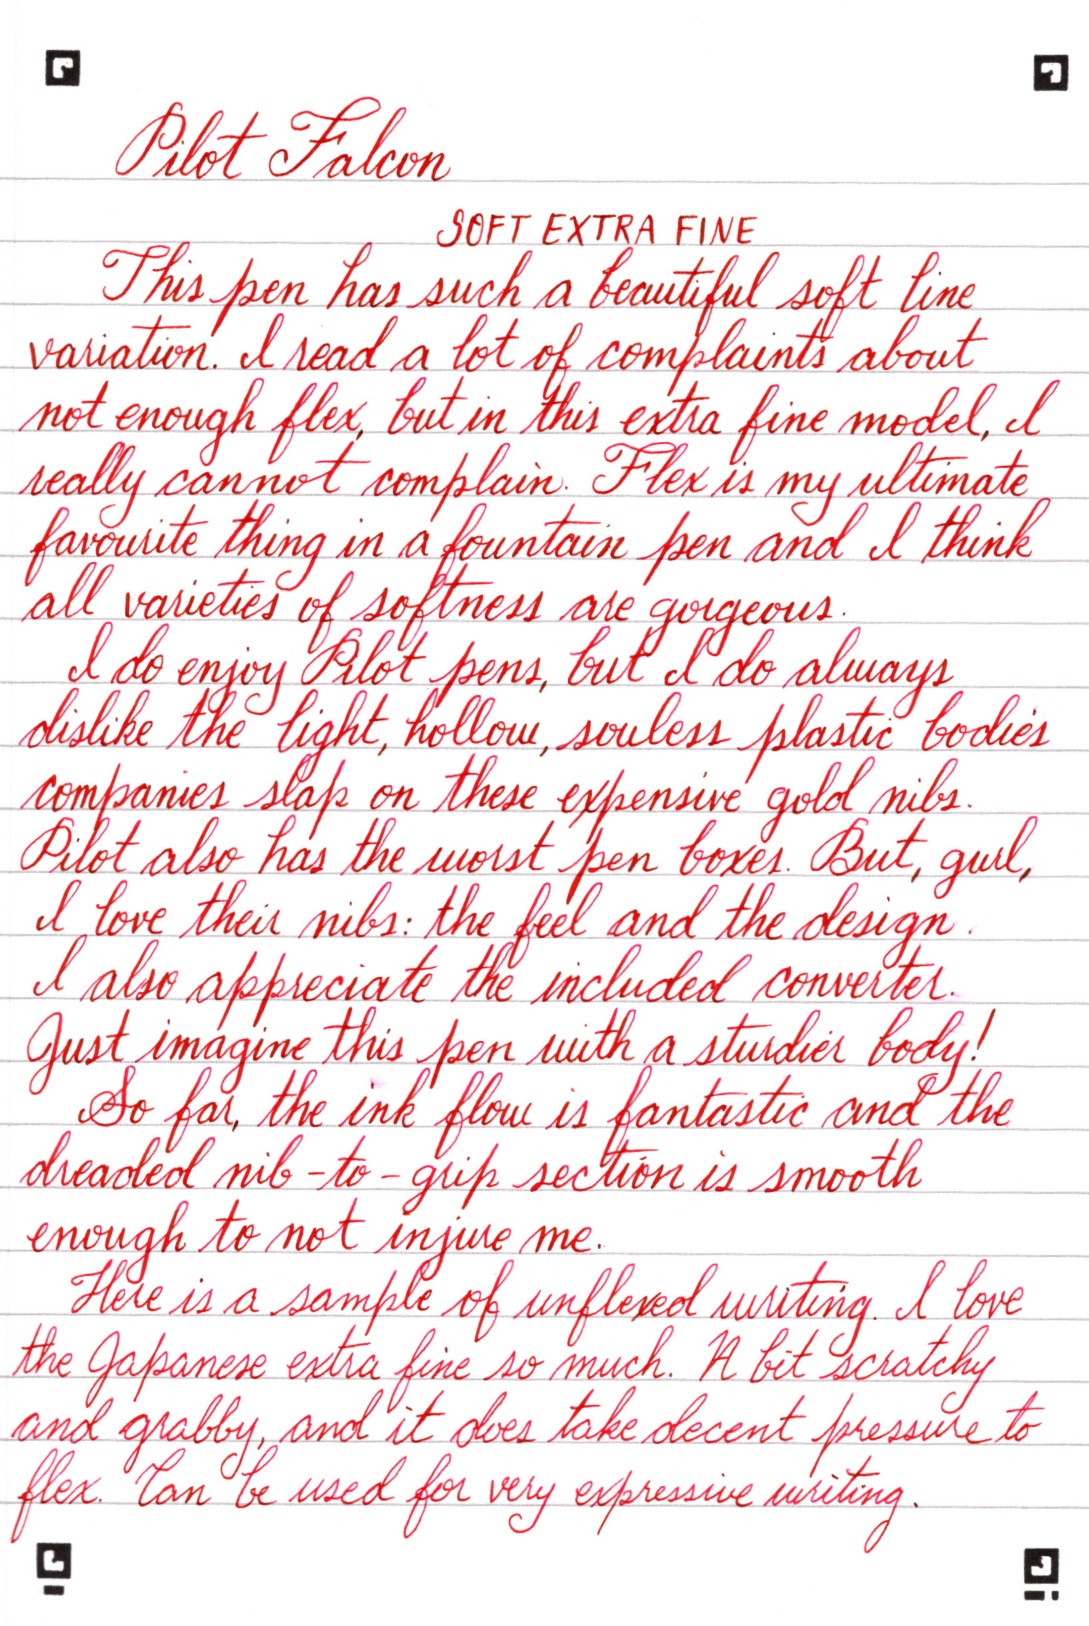 Pilot Falcon
SOFT EXTRA FINE
This pen has such a beautiful soft line
variation. I read a lot of complaints about
not enough flex, but in this extra fine model, I
really cannot complain. Flex is my ultimate
favourite thing in a fountain pen and I think
all varieties of softness are gorgeous.
I do enjoy Pilot pens, but I do always
dislike the light, hollow, souless plastic bodies
companies slap on these expensive gold nibs.
Pilot also has the worst pen boxes. But, gurl,
I love their nibs: the feel and the design.
I also appreciate the included converter.
Just imagine this pen with a sturdier body!
So far, the ink flow is fantastic and the
dreaded nib-to-grip section is smooth
enough to not injure me.
Here is a sample of unflexed writing. I love
the Japanese extra fine so much. A bit scratchy
and grabby, and it does take decent pressure to
flex. Can be used for very expressive writing.